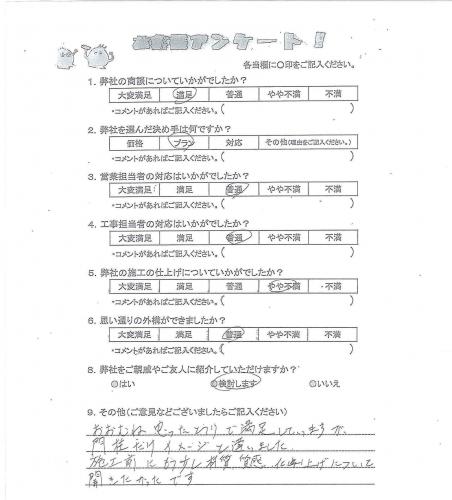 お客様アンケート!
各当欄に○印をご記入ください。
1. 弊社の商談についていかがでしたか?
大変満足 満足 普通 やや不満 不満
・コメントがあればご記入ください。(
2. 弊社を選んだ決め手は何ですか?
価格 プラン 対応 その他(理由をご記入ください。)
・コメントがあればご記入ください。(
3. 営業担当者の対応はいかがでしたか?
大変満足 満足 普通 やや不満 不満
・コメントがあればご記入ください。(
4. 工事担当者の対応はいかがでしたか?
大変満足 満足 普通 やや不満 不満
・コメントがあればご記入ください。(
5. 弊社の施工の仕上げについていかがでしたか?
大変満足 満足 普通 やや不満 不満
・コメントがあればご記入ください。(
6. 思い通りの外構ができましたか?
大変満足 満足 普通 やや不満 不満
・コメントがあればご記入ください。(
8. 弊社をご親戚やご友人に紹介していただけますか?
◎はい ◎検討します ◎いいえ
9. その他(ご意見などございましたらご記入ください)
おおむね思ったとうりで満足していますが、
門柱だけイメージと違いました
施工前にもう少し材質、質感、仕上げについて
聞きたかったです